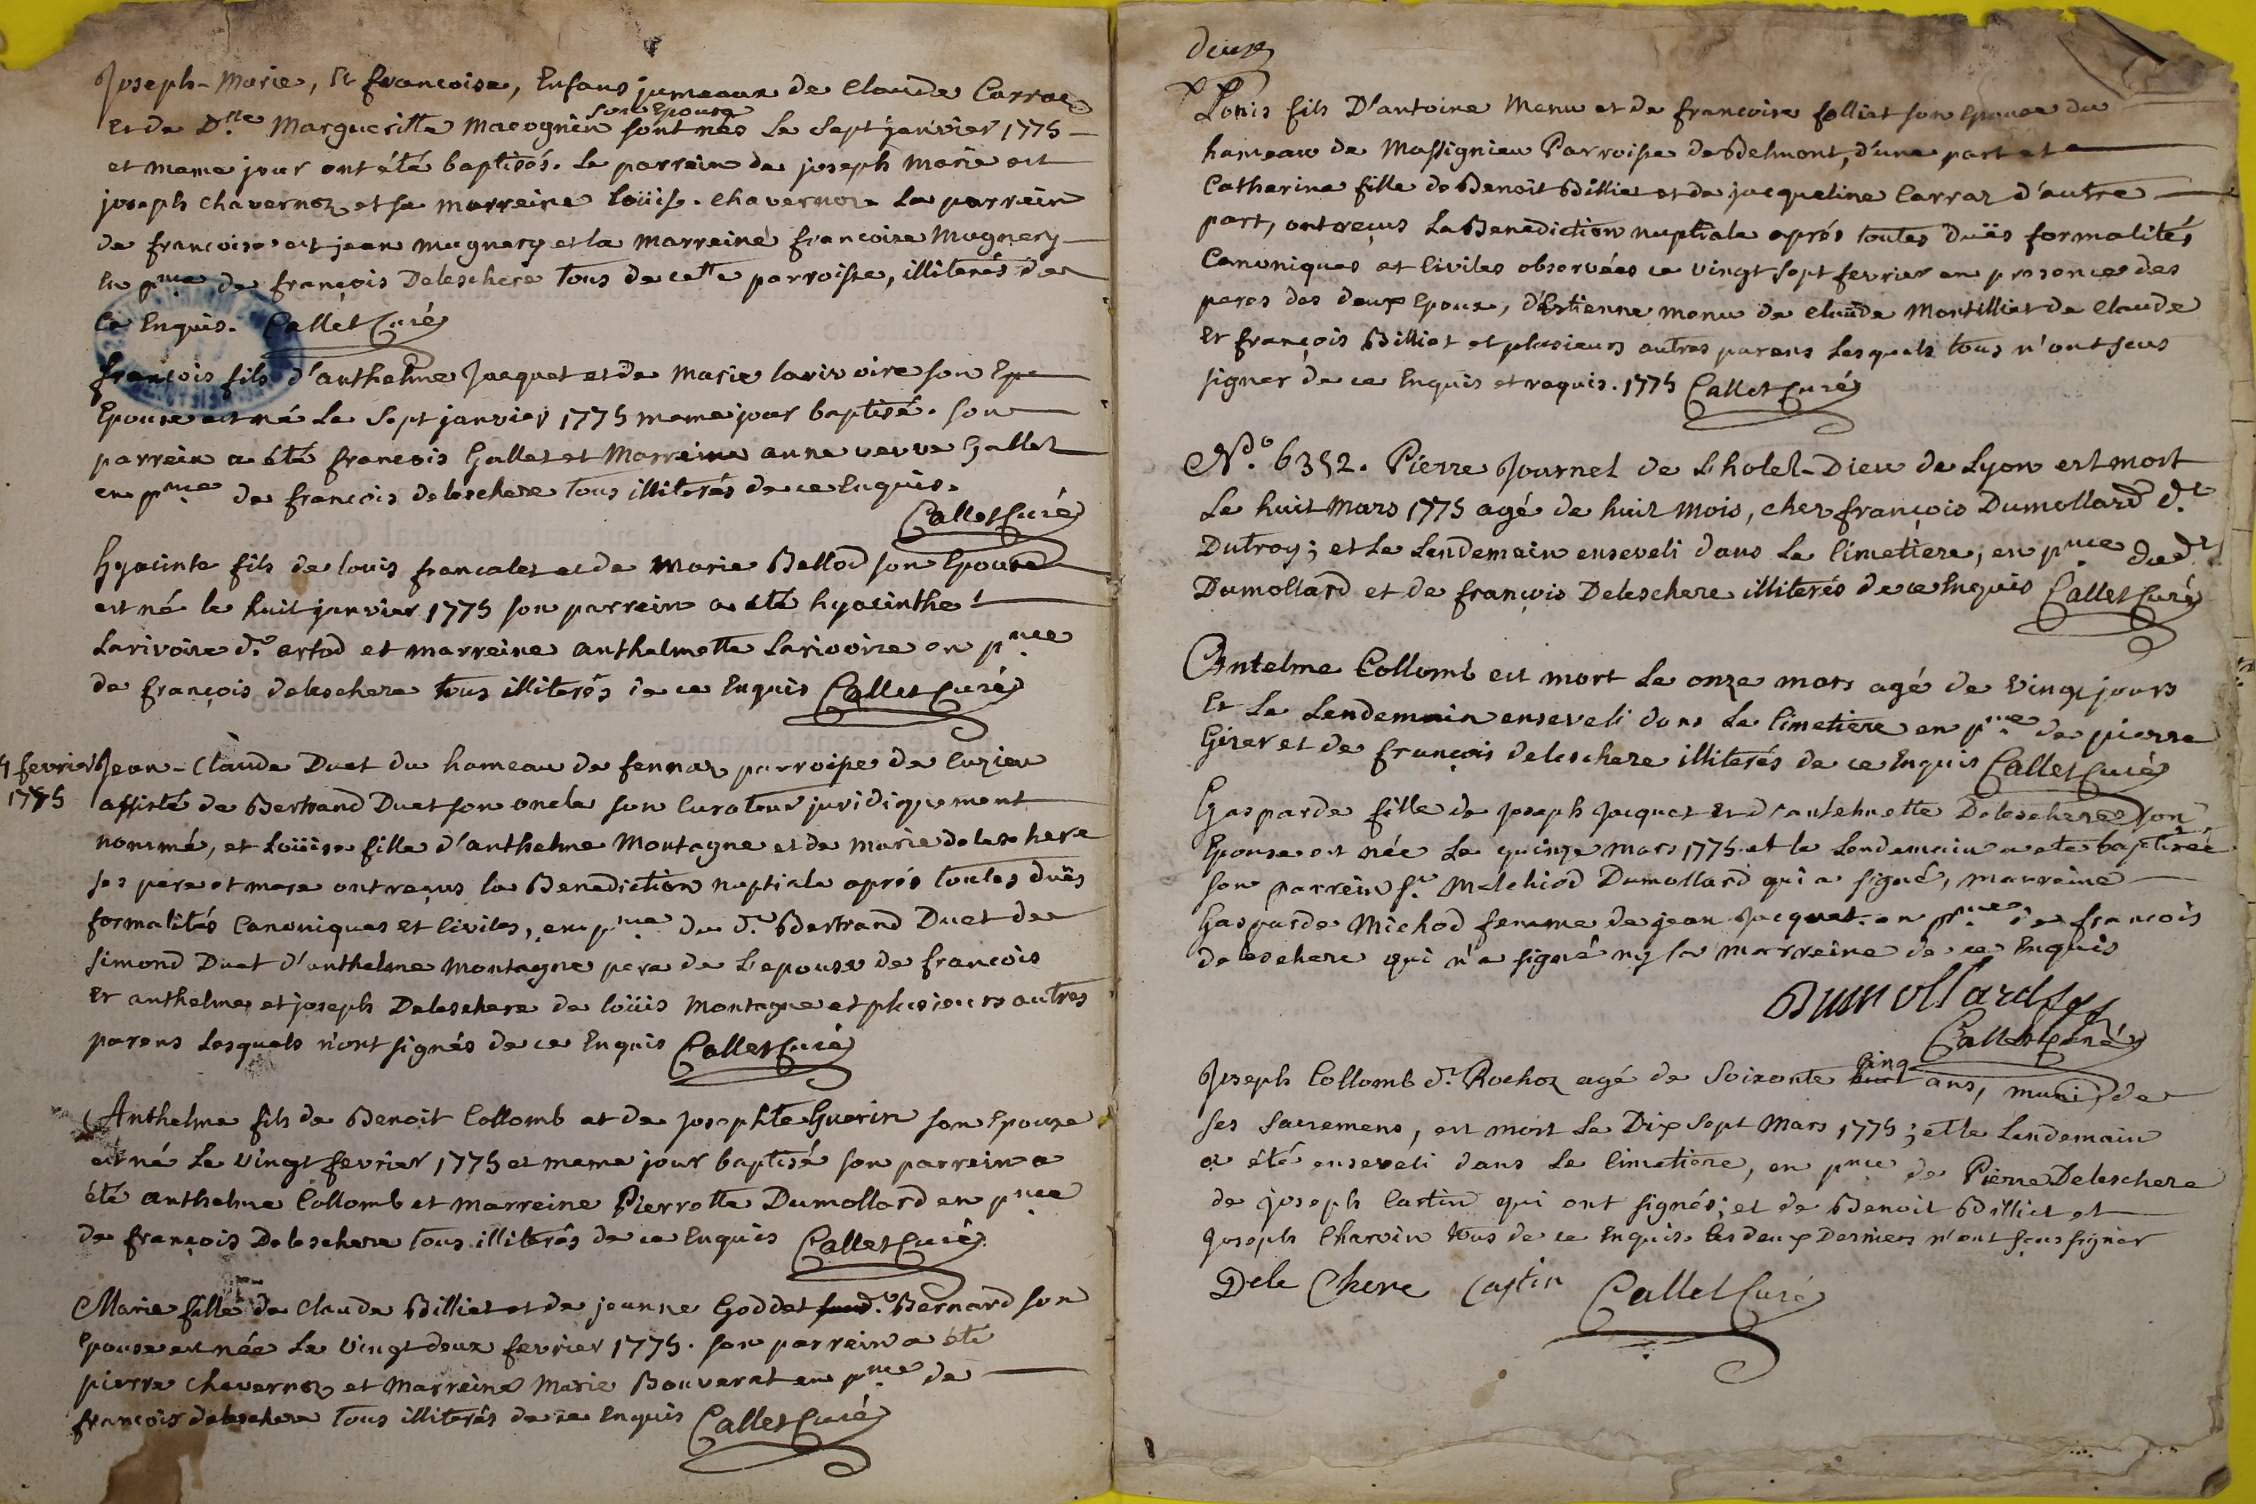 Joseph-Marie, Et francoise, Enfans jumeaux de Claude Carraz
son Epouse
Et de D.lle Margueritte Macognin sont nés Le Sept janvier 1775
et meme jour ont été baptisés. Le parrein de joseph marie est
joseph chavernoz et sa marreine loüise chavernoz Le parrein
de francoise est jean mugnery et la marreine francoise Mugnery
En p.nce de françois Deleschere tous de cette parroisse, illiterés de
Ce Enquis. Callet Curé
françois fils d'anthelme Jacquet et de Marie larivoire son Epe
Epouse est né Le Sept janvier 1775 meme jour baptisé. son
parrein a été francois Gallet et Marreine anne veuve Gallet
en p.nce de francois deleschere tous illiterés de ce Enquis.
Callet Curé
hyacinte fils de louis francalet et de Marie Bellod son Epouse
est né le huit janvier 1775 son parrein a été hyacinthe
Larivoire d.t artod et marreine anthelmette Larivoire en p.nce
de françois deleschere tous illiterés de ce Enquis Callet Curé
4 fevrier
1775
Jean-Claude Duet du hameau de fennaz parroisse de Cuzieu
assisté de Bertrand Duet son oncle son Curateur juridiquement
nommé, et Loüise fille d'anthelme Montagne et de Marie deleschere
ses pere et mere ont reçus la Benediction nuptiale après toutes duës
formalités Canoniques et Civiles, en p.nce du d.t Bertrand Duet de
simond Duet d'anthelme Montagne pere de L'epouse de francois
Et anthelme et joseph Deleschere de loüis Montagne et plusieurs autres
parens Lesquels n'ont signés de ce Enquis Callet Curé
Anthelme fils de Benoit Collomb et de josephte Guerin son Epouse
est né Le vingt fevrier 1775 et meme jour baptisé son parrein a
été anthelme Collomb et marreine Pierrette Dumollard en p.nce
de françois Deleschere tous illiterés de ce Enquis Callet Curé
Marie fille de Claude Billiet et de jeanne Goddet d.t Bernard son
Epouse est née Le vingt deux fevrier 1775. son parrein a été
pierre chavernoz et Marreine Marie Bouverat en p.nce de
françois deleschere tous illiterés de ce Enquis Callet Curé
deux
Loüis fils D'antoine Menu et de francoise folliet son Epouse du
hameau de Massignieu Parroisse de Belmont, d'une part et
Catherine fille de Benoit Billiet et de jacqueline Carraz d'autre
part, ont reçus La Benediction nuptiale après toutes duës formalités
Canoniques et Civiles observées ce vingt sept fevrier en presence des
peres des deux Epoux, d'Estienne menu de claude Montilliet de Claude
Et françois Billiet et plusieurs autres parens Lesquels tous n'ont sçus
signer de ce Enquis et requis. 1775 Callet Curé
N.o 6352. Pierre Journet de L'hotel-Dieu de Lyon est mort
Le huit Mars 1775 agé de huit Mois, chez françois Dumollard d.t
Dutroy; et Le Lendemain enseveli dans Le Cimetiere, en p.nce du d.t
Dumollard et de françois Deleschere illiterés de ce Enquis Callet Curé
Antelme Collomb est mort Le onze mars agé de vingt jours
Et Le Lendemain enseveli dans Le Cimetiere en p.nce de pierre
Girer et de françois deleschere illiterés de ce Enquis Callet Curé
Gasparde fille de Joseph Jacquet et d'antelmette Deleschere son
Epouse est née Le quinze mars 1775. et le Lendemain a eté baptisée
son parrein s.r Melchiod Dumollard qui a signé, marreine
Gasparde Michod femme de jean Jacquet en p.nce de francois
deleschere qui n'a signé ny la marreine de ce Enquis
Dumollard
Callet Curé
cinq
Joseph Collomb d.t Rochoz agé de Soixante huit ans, muni de
ses sacremens, est mort Le Dix Sept Mars 1775; et le Lendemain
a été enseveli dans Le Cimetiere, en p.nce de Pierre Deleschere
de joseph Castin qui ont signés; et de Benoit Billiet et
Joseph Charvin tous de ce Enquis. les deux Derniers n'ont sçus signer
Dele Chere Castin Callet Curé